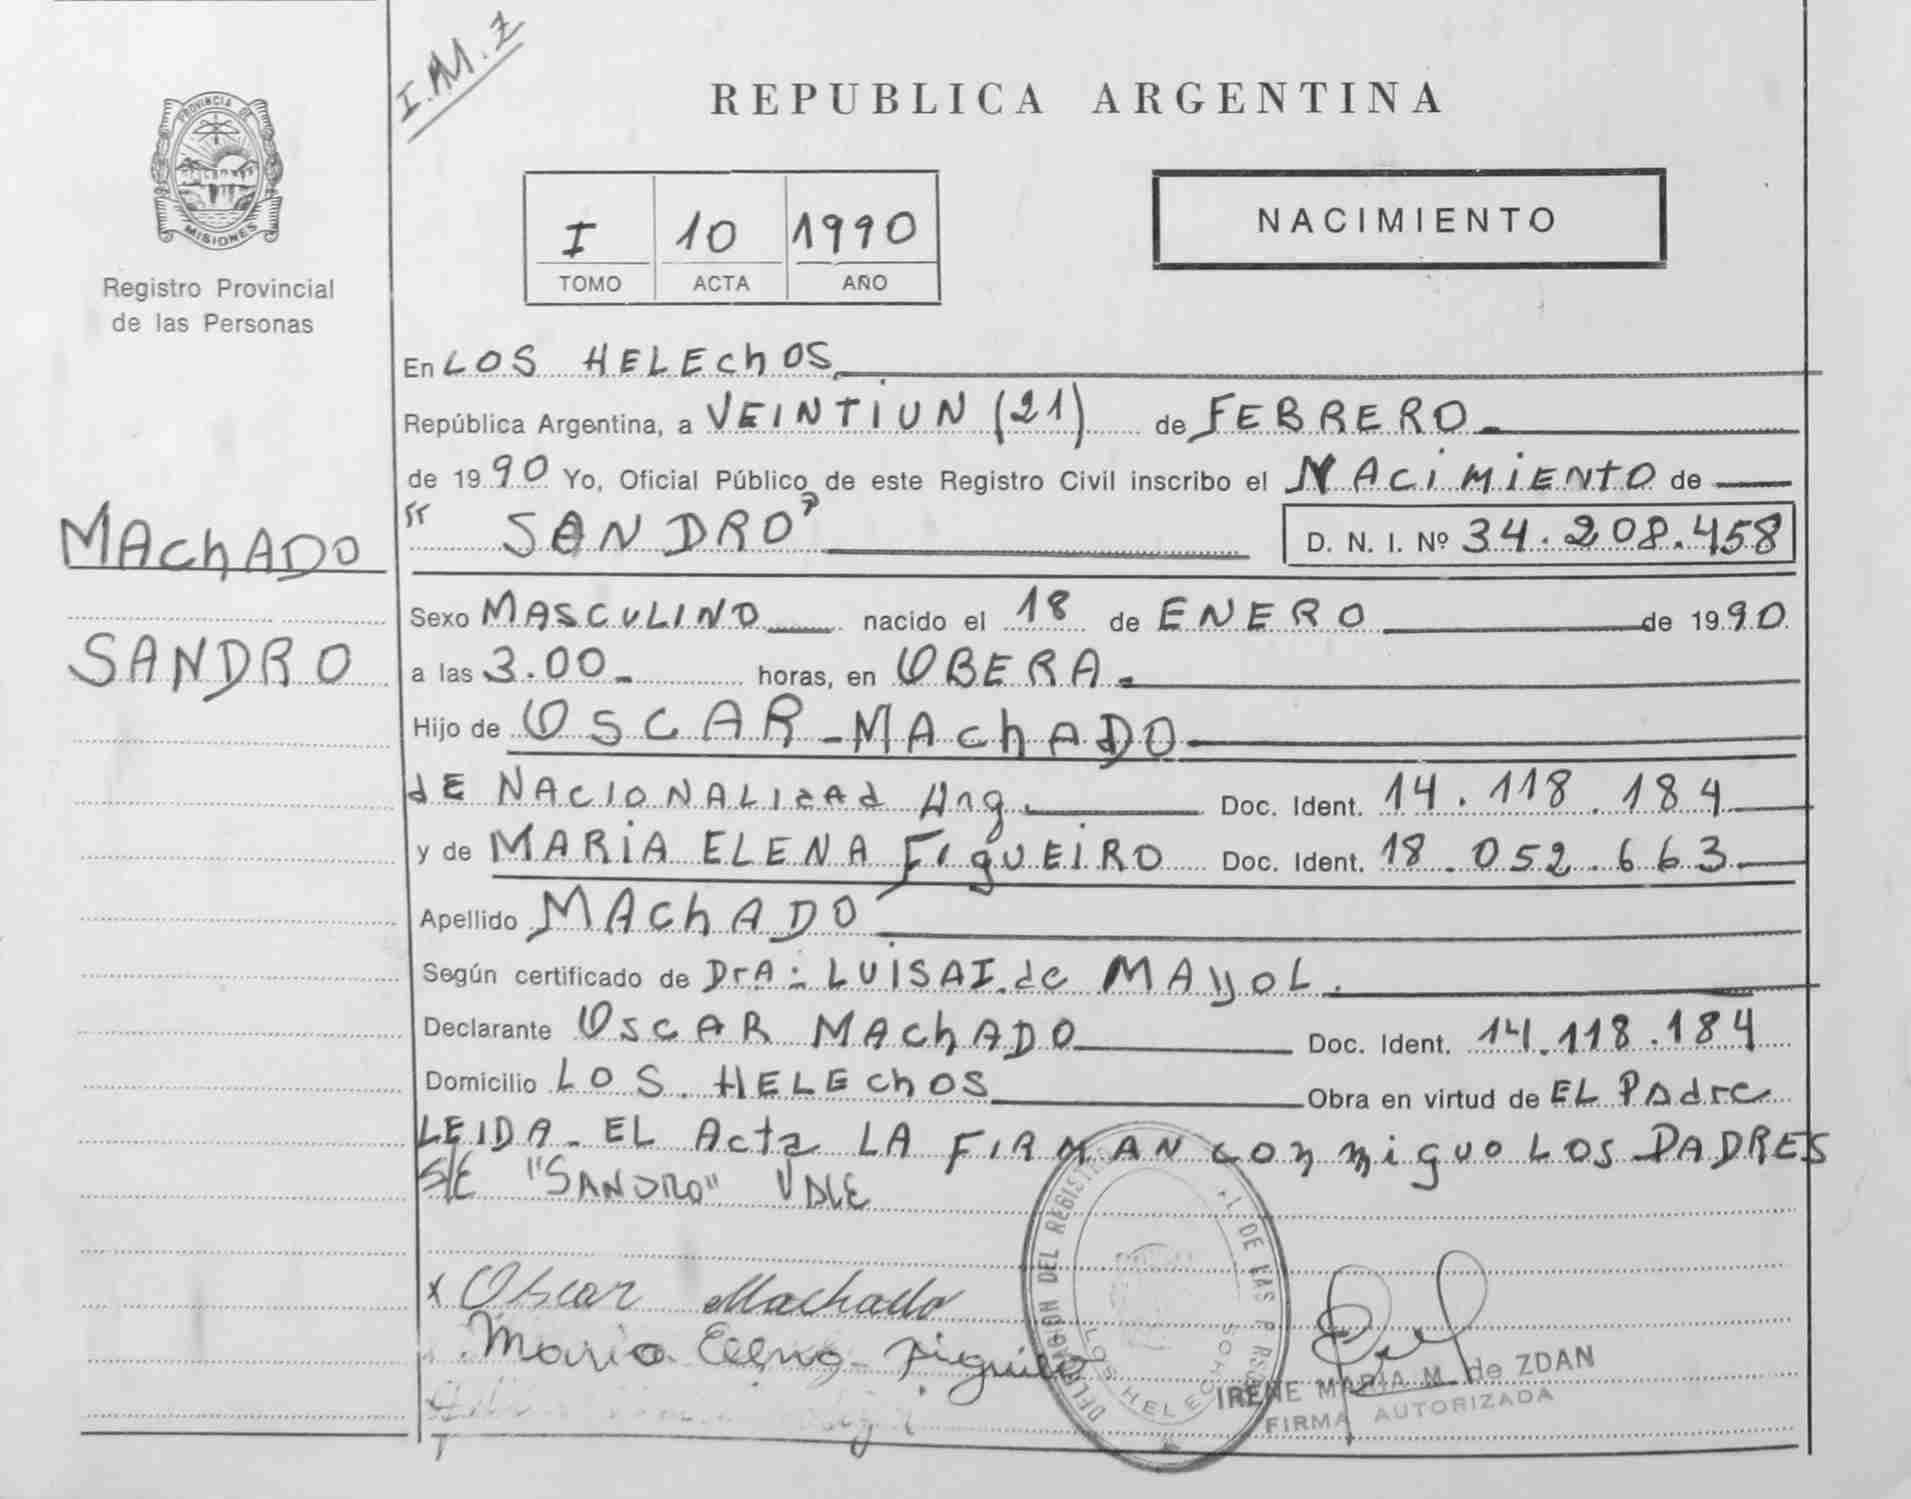 I.M.Z
REPUBLICA ARGENTINA
PROVINCIA DE
MISIONES
Registro Provincial
de las Personas
I 10 1990
TOMO ACTA AÑO
NACIMIENTO
En LOS HELEchOS
República Argentina, a VEINTIUN (21) de FEBRERO
de 1990 Yo, Oficial Público de este Registro Civil inscribo el NACIMIENTO de
"SANDRO" D. N. I. Nº 34.208.458
MAchADO
SANDRO
Sexo MASCULINO nacido el 18 de ENERO de 1990
a las 3.00 horas, en OBERA.
Hijo de OSCAR - MAchADO
dE NACIONALIdAd Arg. Doc. Ident. 14.118.184
y de MARIA ELENA FIgUEIRO Doc. Ident. 18.052.663
Apellido MAchADO
Según certificado de DrA: LUISA I. de MAyOL.
Declarante OSCAR MAchADO Doc. Ident. 14.118.184
Domicilio LOS HELEchOS Obra en virtud de EL PAdre
LEIDA - EL Acta LA FIRMAN conmiguo LOS PADRES
S/E "SANDRO" VALE
x Oscar Machado
Maria Elena
DELEGACION DEL REGISTRO DE LAS
LOS HELECHOS
IRENE MARIA M. de ZDAN
FIRMA AUTORIZADA